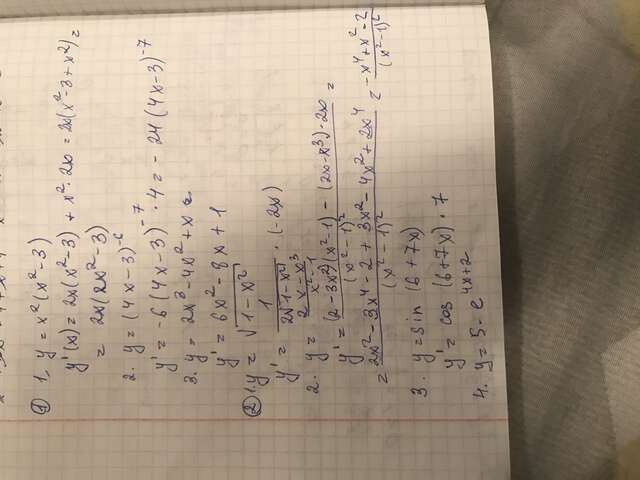 ① 1. y = x²(x²-3)
y'(x) = 2x(x²-3) + x²·2x = 2x(x²-3+x²) =
= 2x(2x²-3)
2. y = (4x-3)⁻⁶
y' = -6(4x-3)⁻⁷·4 = -24(4x-3)⁻⁷
3. y = 2x³-4x²+x
y' = 6x²-8x+1
② 1. y = √(1-x²)
y' = 1/(2√(1-x²)) · (-2x)
2. y = (2x-x³)/(x²-1)
y' = ((2-3x²)(x²-1) - (2x-x³)·2x)/(x²-1)² =
= (2x²-3x⁴-2+3x²-4x²+2x⁴)/(x²-1)² = (-x⁴+x²-2)/(x²-1)²
3. y = sin (6+7x)
y' = cos (6+7x)·7
4. y = 5-e⁴ˣ⁺²